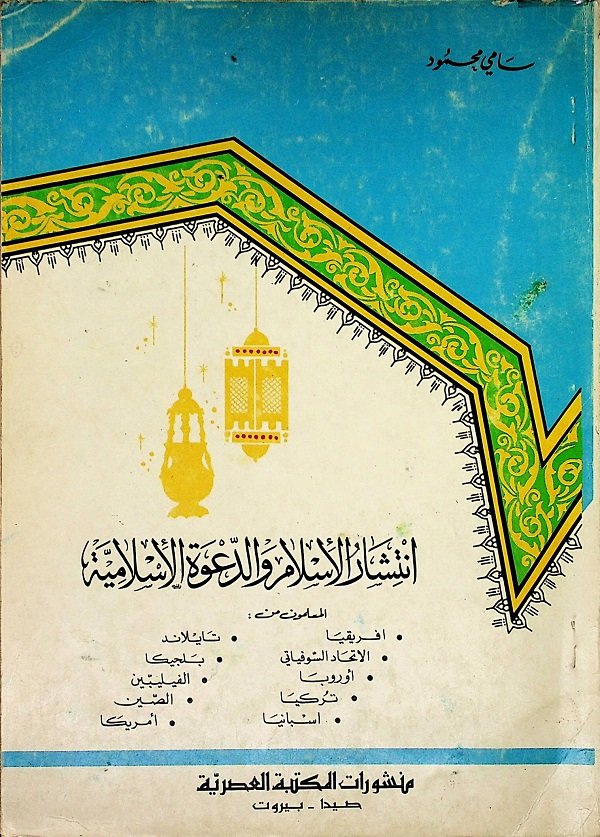 سامي محمود
انتشار الأسلام والدّعوة الإسلاميّة
المسلمون من :
• افريقيا • تايلاند
• الاتحاد السّوفياتي • بلجيكا
• أوروبا • الفيليبّين
• تركيا • الصّين
• اسبانيا • أمريكا
منشورات المكتبة العصريّة
صيدا - بيروت